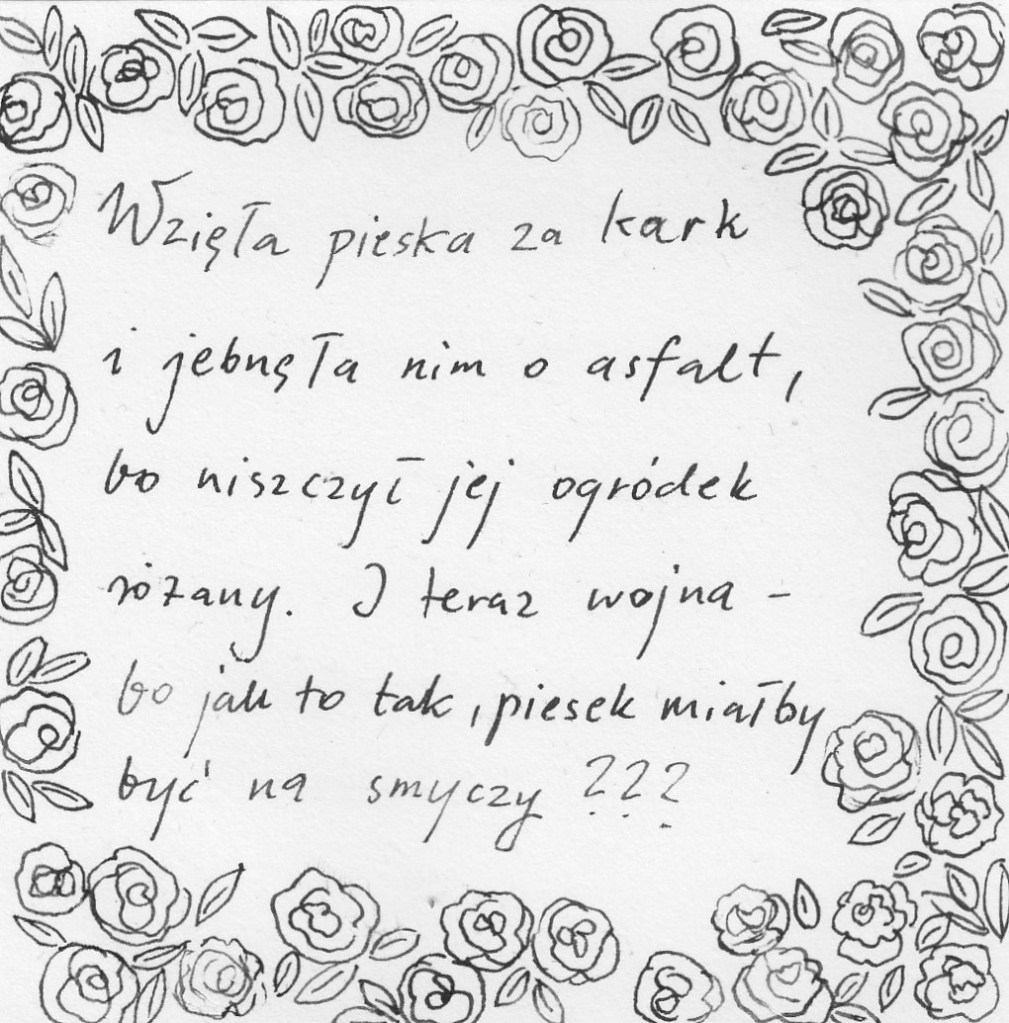 Wzięła pieska za kark
i jebnęła nim o asfalt,
bo niszczył jej ogródek
różany. I teraz wojna -
bo jak to tak, piesek miałby
być na smyczy ???